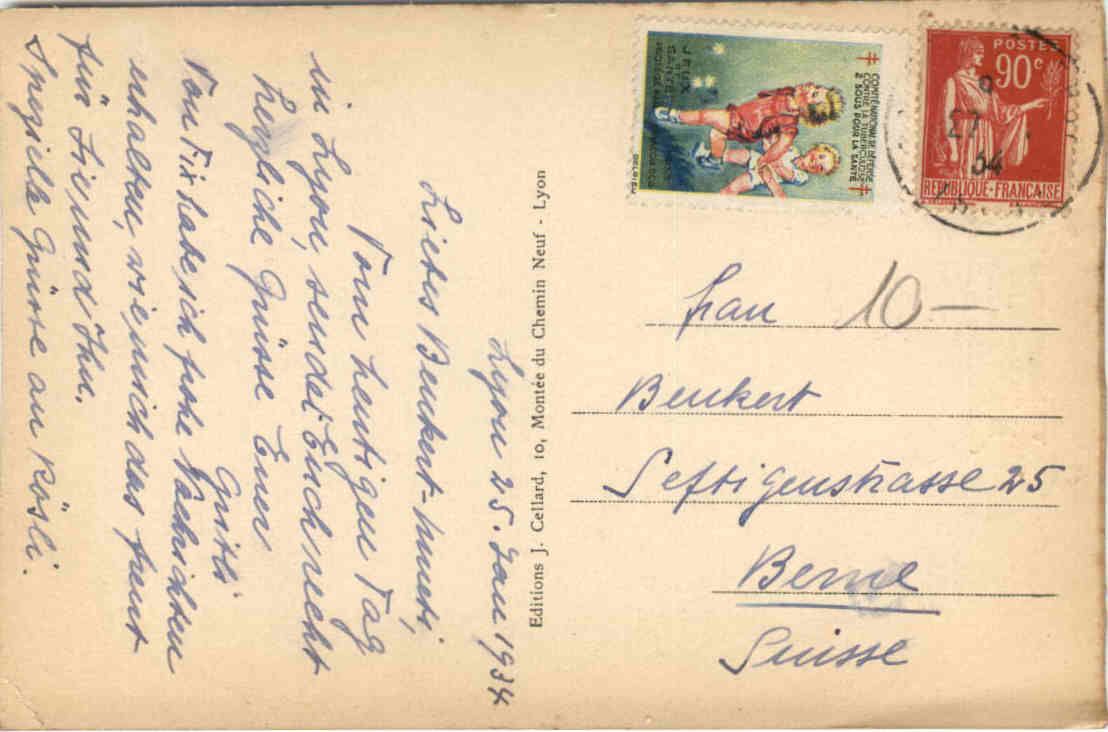 Lyon 25. Jan 1934
Liebes Beukert-Mueti,
Vom heutigen Tag
in Lyon, sendet Euch recht
herzliche Grüsse Euer
Gritli
Von Fix habe ich frohe Nachrichten
erhalten, wie mich das freut
für Sie und Ihn.
Spezielle Grüsse an Rösli.
Editions J. Cellard, 10, Montée du Chemin Neuf - Lyon
JEUX
SANTÉ
CONTRE LA TUBERCULOSE
2 SOUS POUR LA SANTÉ
POSTES
90c
REPUBLIQUE-FRANÇAISE
27
34
Frau
10 —
Beukert
Seftigenstrasse 25
Berne
Suisse